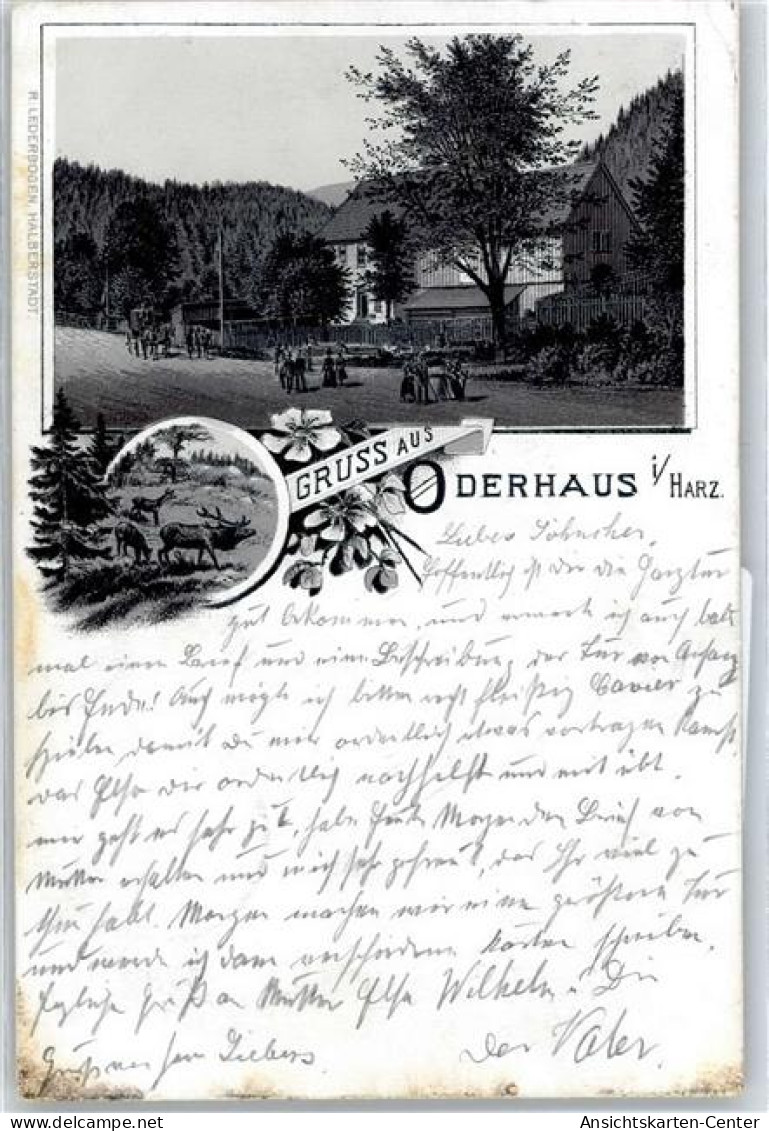 R. LEDERBOGEN, HALBERSTADT.
GRUSS AUS
ODERHAUS i/ HARZ.
Liebes Söhnchen,
Hoffentlich ist dir die Harztur
gut bekommen, und erwarte ich auch bald
mal einen Brief und eine Beschreibung der Tur von Anfang
bis Ende! Auch möchte ich bitten recht fleißig Clavier zu
spielen, damit du mir ordentlich etwas vortragen kannst,
das Else dir ordentlich nachhilft und mit übt.
mir geht es sehr gut, habe heute Morgen den Brief von
Mutter erhalten und mich sehr gefreut, das Ihr viel zu
thun habt. Morgen machen wir eine größere Tur
und werde ich dann verschiedene Karten schreiben.
Grüß an Mutter Else Wilhelm u. Die
Der Vater.
Gruß von Herrn Siebers.
Ansichtskarten-Center